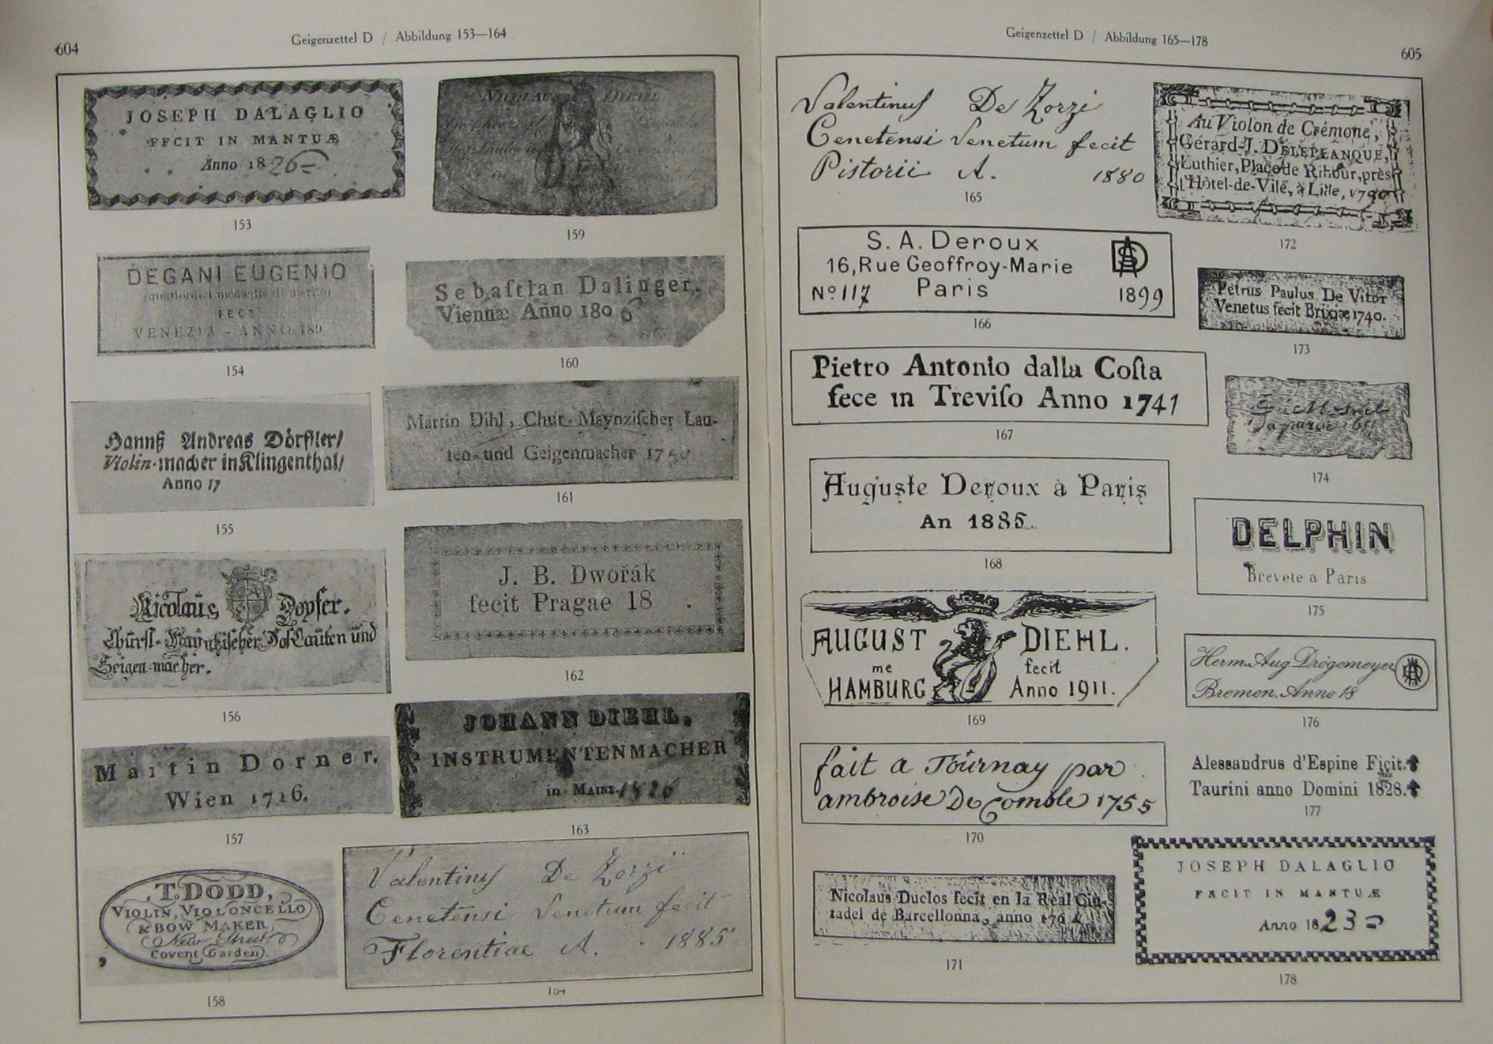 604
Geigenzettel D / Abbildung 153—164
JOSEPH DALAGLIO
FFCIT IN MANTUÆ
Anno 1826
153
NICOLAUS DIEHL
159
DEGANI EUGENIO
FECE
VENEZIA - ANNO 189
154
Sebaſtian Dalinger,
Viennæ Anno 1806
160
Hannß Andreas Dörffler/
Violin-macher in Klingenthal/
Anno 17
155
Martin Dihl, Chur-Maynziſcher Lau-
ten- und Geigenmacher 17
161
Nicolaus Dopfer.
Chürſt-Mayntziſcher Hof Lauten und
Geigen-macher.
156
J. B. Dwořák
fecit Pragae 18 .
162
Martin Dorner,
Wien 1716.
157
JOHANN DIEHL,
INSTRUMENTENMACHER
in MAINZ 1826
163
T. DODD,
VIOLIN, VIOLONCELLO
& BOW MAKER,
New Street
Covent Garden.
158
Valentinus De Zorzi
Cenetensi Venetum fecit
Florentiae A. 1885
164
Geigenzettel D / Abbildung 165—178
605
Valentinus De Zorzi
Cenetensi Venetum fecit
Pistorii A. 1880
165
Au Violon de Crémone,
Gérard-J. DELEPLANQUE,
Luthier, Place de Rihour, près
l'Hôtel-de-Vile, à Lille, 1790
172
S. A. Deroux
16, Rue Geoffroy-Marie
No 117 Paris 1899
166
Petrus Paulus De Vitor
Venetus fecit Brixiæ 1740.
173
Pietro Antonio dalla Coſta
fece in Treviſo Anno 1741
167
174
Auguste Deroux à Paris
An 1885.
168
DELPHIN
Brevete a Paris
175
AUGUST DIEHL.
me fecit
HAMBURG Anno 1911.
169
Herm. Aug Drögemeyer
Bremen. Anno 18
176
fait a Tournay par
ambroise De Comble 1755
170
Alessandrus d'Espine Ficit.
Taurini anno Domini 1828.
177
Nicolaus Duclos fecit en la Real Ciu-
tadel de Barcellonna, anno 176
171
JOSEPH DALAGLIO
FACIT IN MANTUÆ
Anno 1823
178